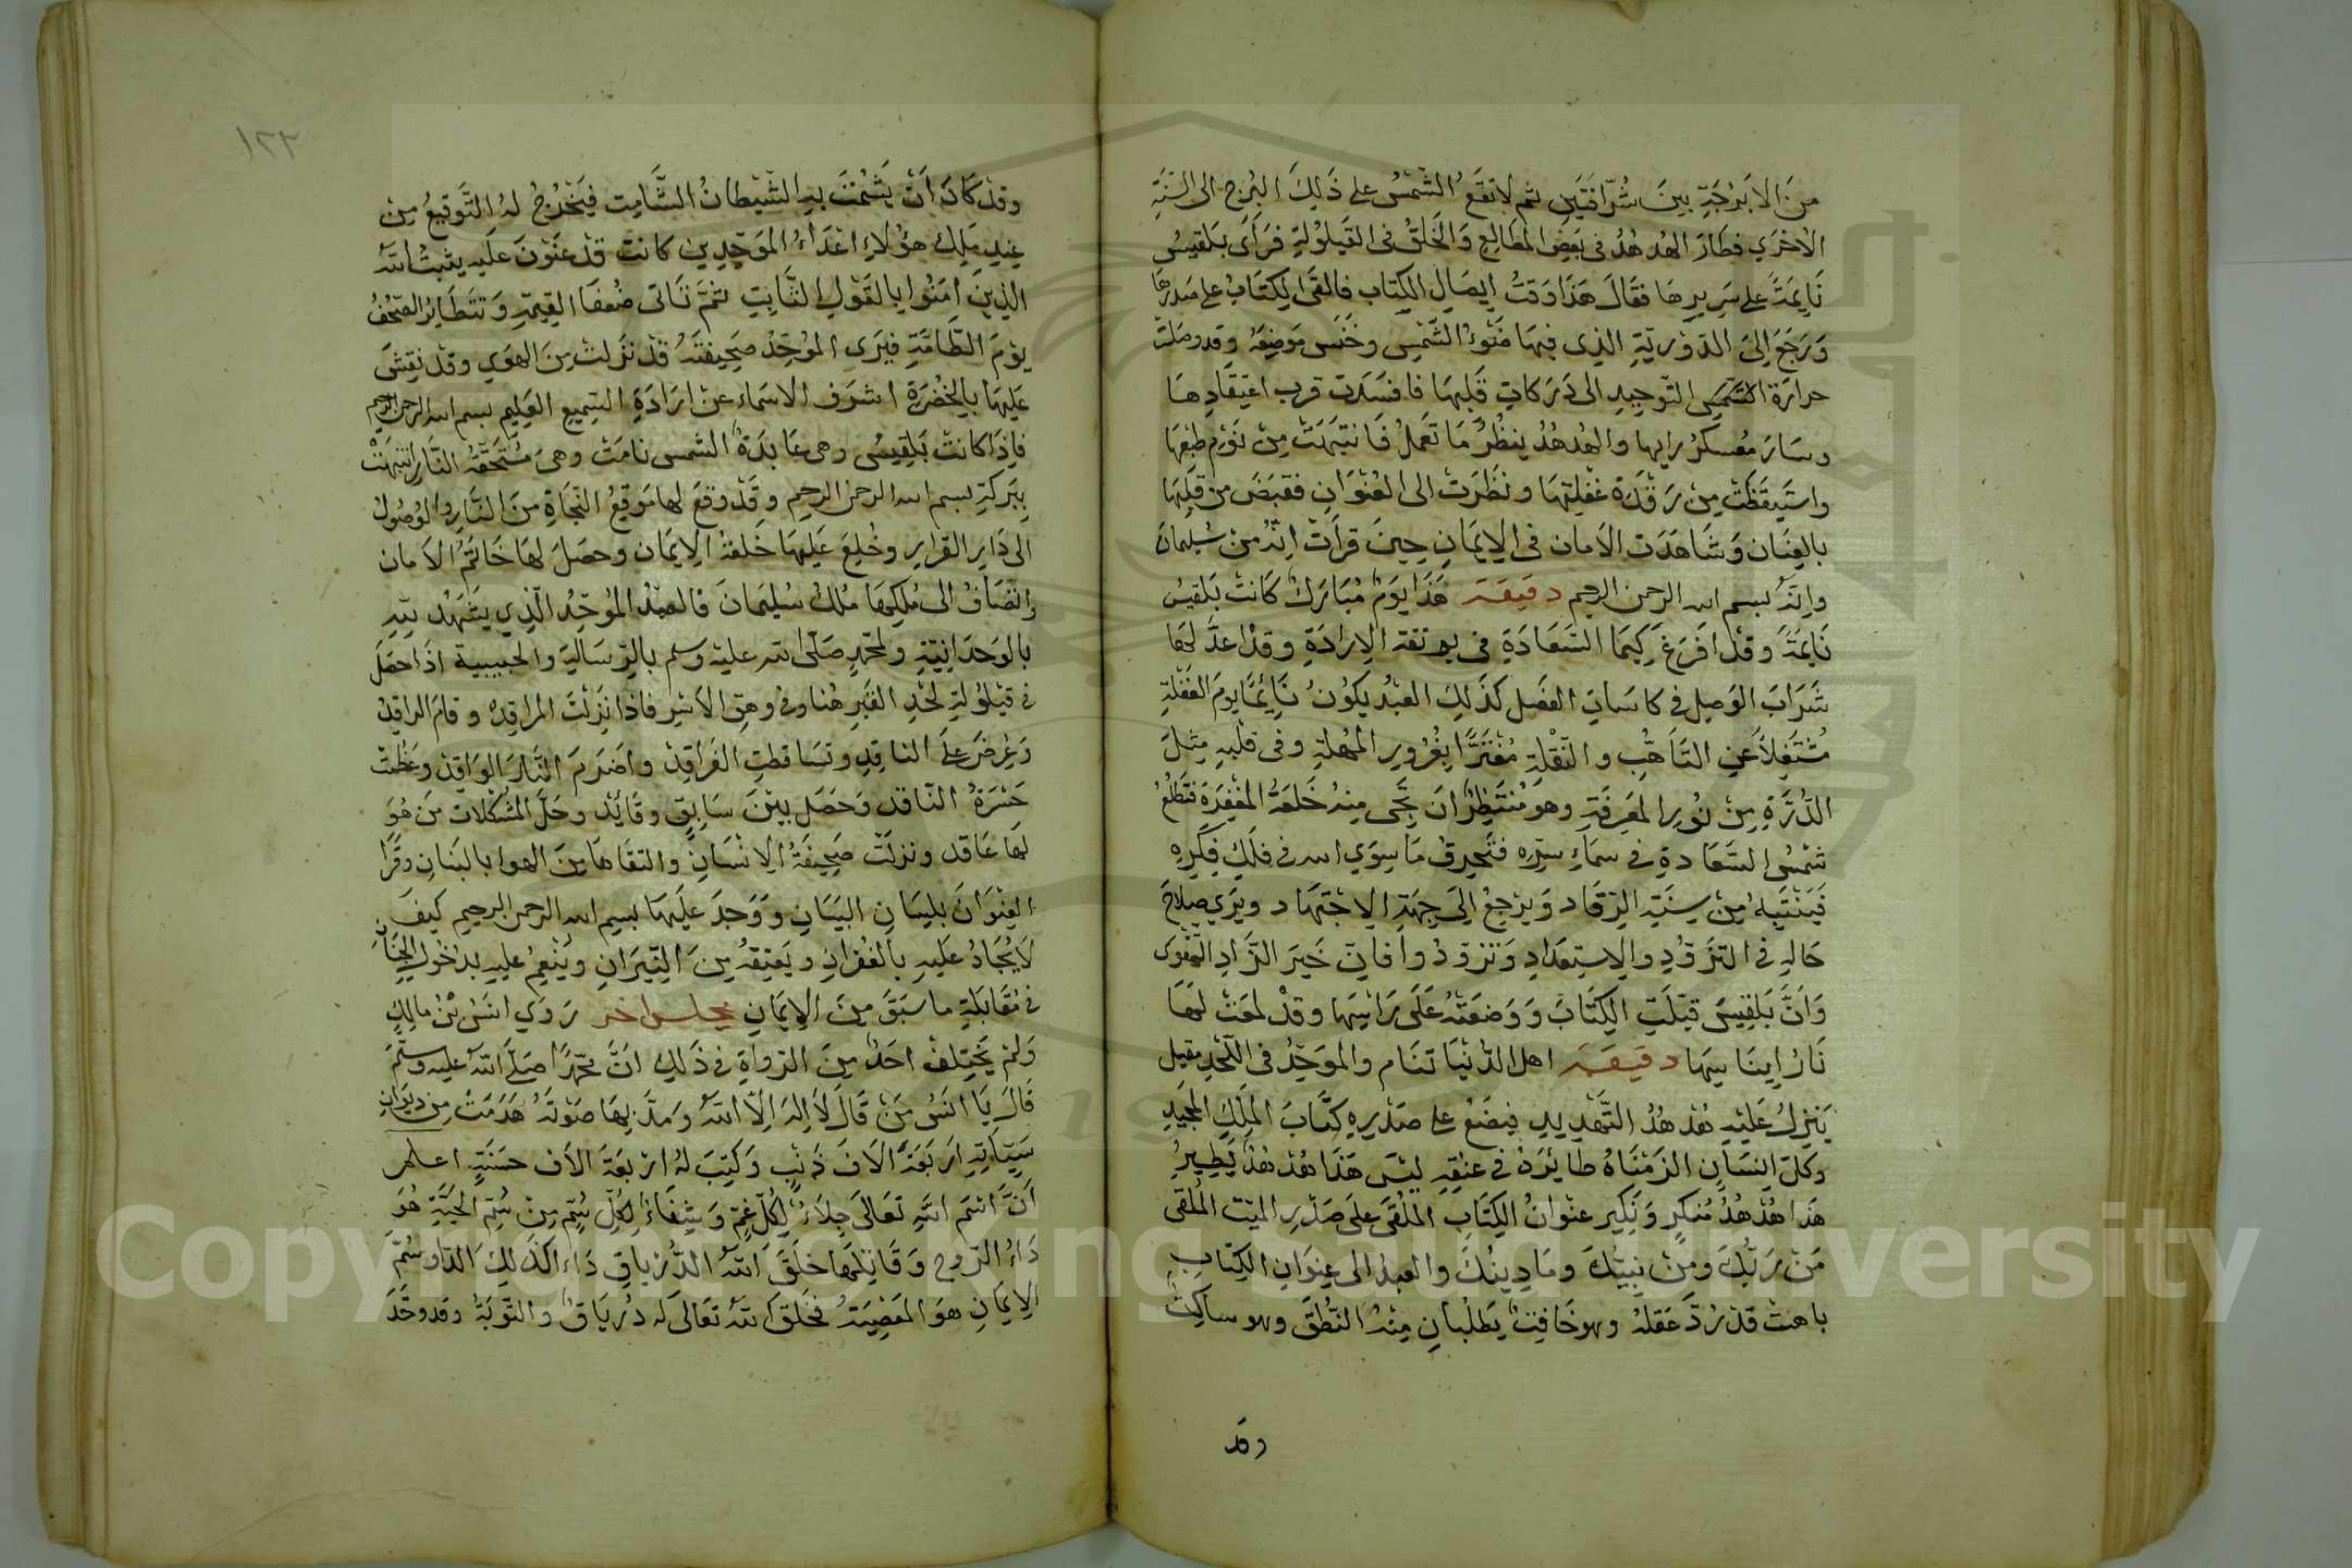 من الابرجة بين شرافتين ثم لا تقع الشمس على ذلك البرج الى السنة
الاخرى فطار الهدهد في بعض المطالع والخلق في القيلولة فرأى بلقيس
نايمة على سريرها فقال هذا وقت ايصال الكتاب فالقى الكتاب على صدرها
ورجع الى الذي فيها ضوء الشمس وخنس موضعه وقد وصلت
حرارة التوحيد الى دركات قلبها فافسدت قرب اعتقادها
وسار معسكر رايها والهدهد ينظر ما تعمل فانتبهت من نوم طبعها
واستيقظت من رقدة غفلتها ونظرت الى العنوان فقبض من قلبها
بالعنان وشاهدت الامان في الايمان حين قرأت انه من سليمان
وانه بسم الله الرحمن الرحيم دقيقة هذا يوم مبارك كانت بلقيس
نايمة وقد افرغ كيما السعادة في بوتقة الارادة وقد اعد لها
شراب الوصل في كاسات الفضل كذلك العبد يكون نايما يوم الغفلة
عن التاهب والنقلة مغترا بغرور المهلة وفي قلبه مثل
الذرة من نور المعرفة وهو منتظر ان تجى منه خلعة المغفرة فتطلع
شمس السعادة في سماء سره فتحرق ما سوى الله في فلك فكره
فينتبه من سنة الرقاد ويرجع الى جهة الاجتهاد ويرى صلاح
حاله في التزود والاستعداد وتزودوا فان خير الزاد التقوى
وان بلقيس قبلت الكتاب ووضعته على راسها وقد لمعت لها
نار دقيقة اهل الدنيا تنام والموحد في اللحد مقيل
ينزل عليه هدهد التهديد فيضع على صدره كتاب الملك المجيد
وكل انسان الزمناه طايره في عنقه ليس هذا هدهد يطير
هذا هدهد منكر ونكير عنوان الكتاب الملقى على صدر الميت الملقى
من ربك ومن نبيك وما دينك والعبد الى عنوان الكتاب
باهت قد رد عقله وهو خافت يطلبان منه النطق وهو ساكت
وقد
١٢٣
وقد كاد ان يشمت به الشيطان الشامت فيخرج له التوقيع من
عند ملك هؤلاء اعداء الموحدين كانت قد عنون عليه يثبت الله
الذين امنوا بالقول الثابت ثم تاتى ضعفا القيمة وتتطاير الصحف
يوم الطامة فيرى الموحد صحيفته قد نزلت من الهوى وقد نقش
عليها بالخضرة اشرف الاسماء عن ارادة السميع العليم بسم الله الرحمن الرحيم
فاذا كانت بلقيس وهى عابدة الشمس نامت وهى مستحقة النار انتبهت
ببركة بسم الله الرحمن الرحيم وقد وقع لها موقيع النجاة من النار والوصول
الى دار القرار وخلع عليها خلعة الايمان وحصل لها خاتم الامان
وانضاف الى ملكها ملك سليمان فالعبد الموحد الذي يشهد لله
بالوحدانية ولمحمد صلى الله عليه وسلم بالرسالة والحبيبية اذا حصل
في قيلولة لحد القبر هنا وفي وهق الاسر فاذا نزلت المراقد وقام الراقد
وعرض على الناقد وتساقطت الفراقد واضرم النار الواقد وعظمت
حسرة الناقد وحصل بين سابق وقائد وحل المشكلات من هو
لها عاقد ونزلت صحيفة الانسان والتقاها من الهوا بالبنان وقرا
العنوان بلسان البيان ووجد عليها بسم الله الرحمن الرحيم كيف
لا يجاد عليه بالغفران ويعتقه من النيران وينعم عليه بدخول الجنان
في مقابلة ما سبق من الايمان مجلس اخر روي انس بن مالك
ولم يختلف احد من الرواة في ذلك ان محمدا صلى الله عليه وسلم
قال يا انس من قال لا اله الا الله ومد بها صوته هدمت من ديوان
سيئاته اربعة الاف ذنب وكتب له اربعة الاف حسنة اعلم
ان اسم الله تعالى جلاء لكل غم وشفاء لكل سم من سم الحية هو
داء الروح وقاتلها خلق الله الدرياق داء كذلك الداء وسم
الايمان هو المعصية فخلق الله تعالى له درياق والتوبة وقد وحد